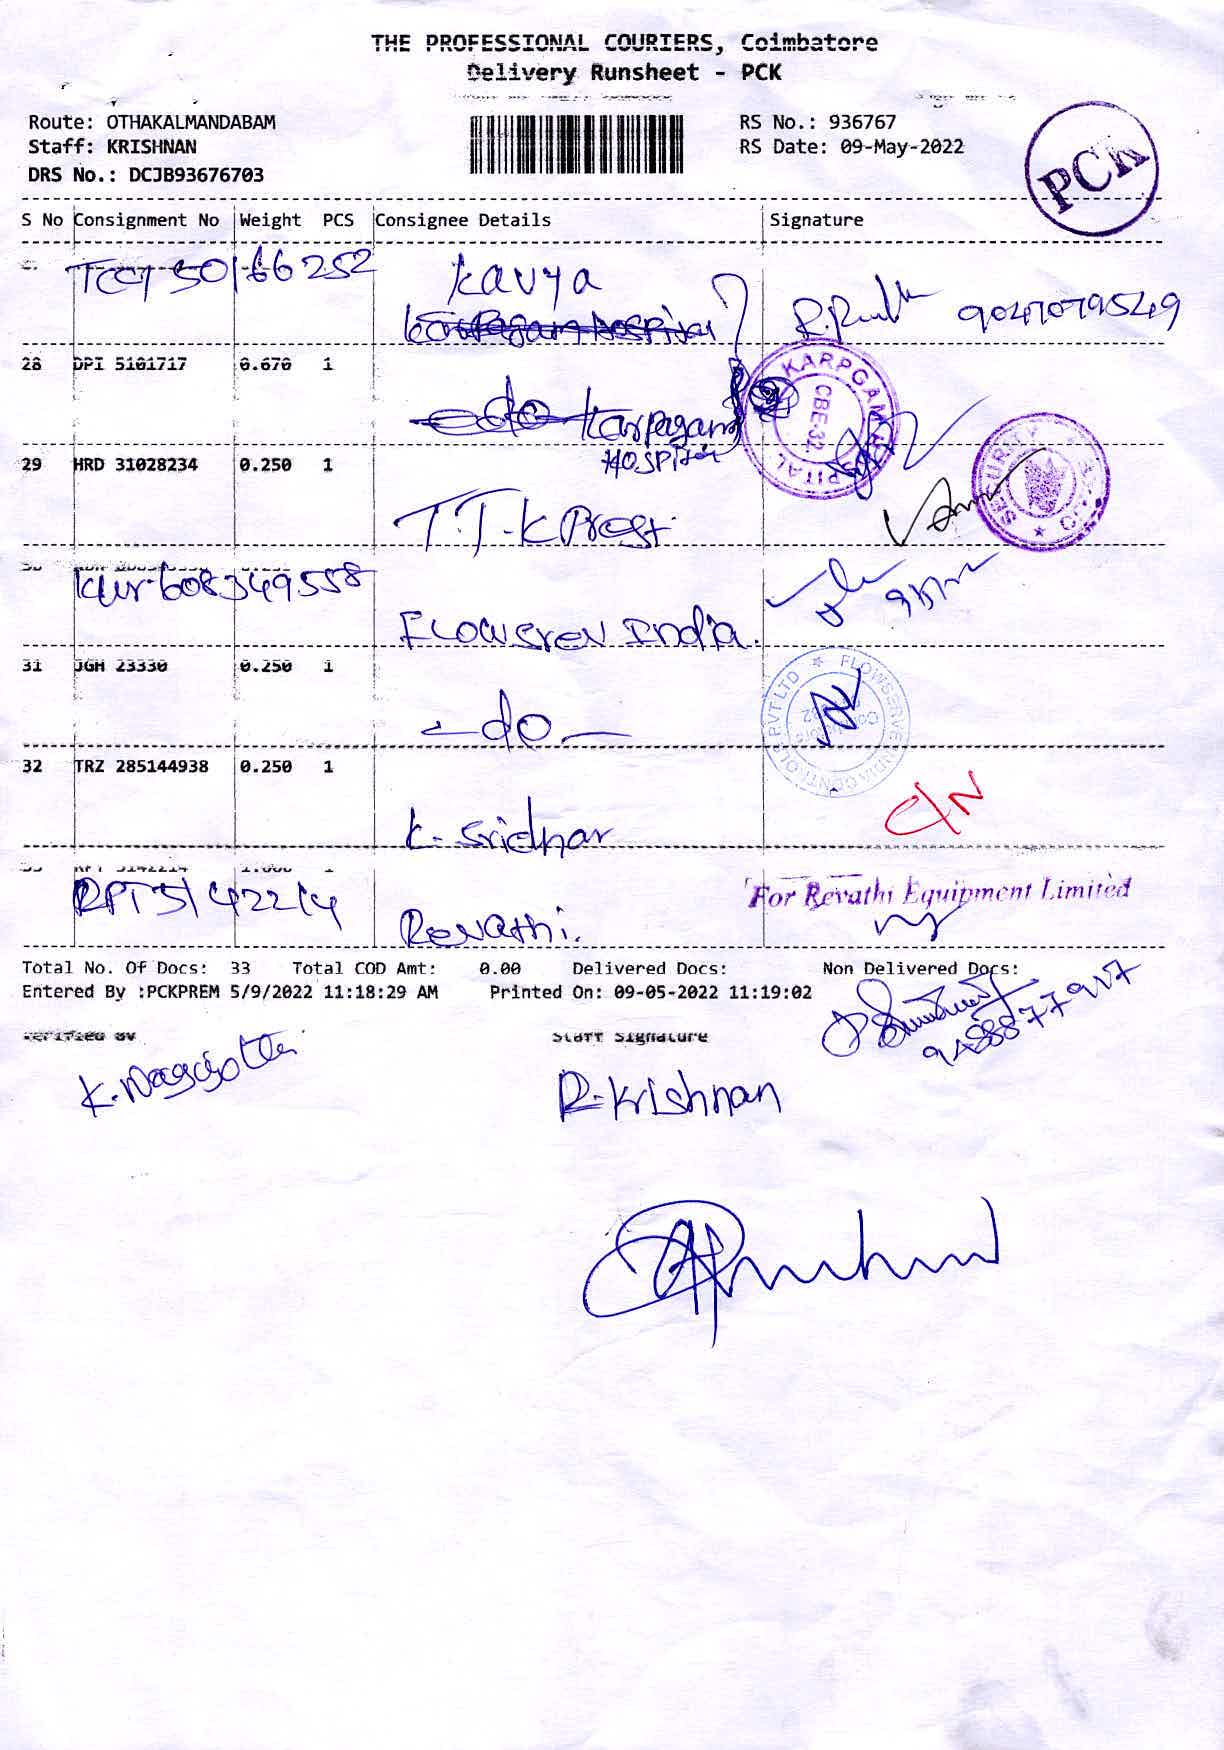 THE PROFESSIONAL COURIERS, Coimbatore
Delivery Runsheet - PCK
Route: OTHAKALMANDABAM
Staff: KRISHNAN
DRS No.: DCJB93676703
RS No.: 936767
RS Date: 09-May-2022
PCK
S No Consignment No Weight PCS Consignee Details Signature
50166252 Kavya
9047079549
28 DPI 5101717 0.670 1
do Karpagam
Hospital
KARPGAM HOSPITAL CBE-32
29 HRD 31028234 0.250 1
T.T.K Prest.
SECURITY
608349558
India.
31 JGH 23330 0.250 1
-do-
FLOWSERVE INDIA CONTROLS PVT LTD
32 TRZ 285144938 0.250 1
K. Sridhar
C/N
RPT 3142214
Revathi.
For Revathi Equipment Limited
Total No. Of Docs: 33 Total COD Amt: 0.00 Delivered Docs: Non Delivered Docs:
Entered By :PCKPREM 5/9/2022 11:18:29 AM Printed On: 09-05-2022 11:19:02
Verified By Staff Signature
R. Krishnan